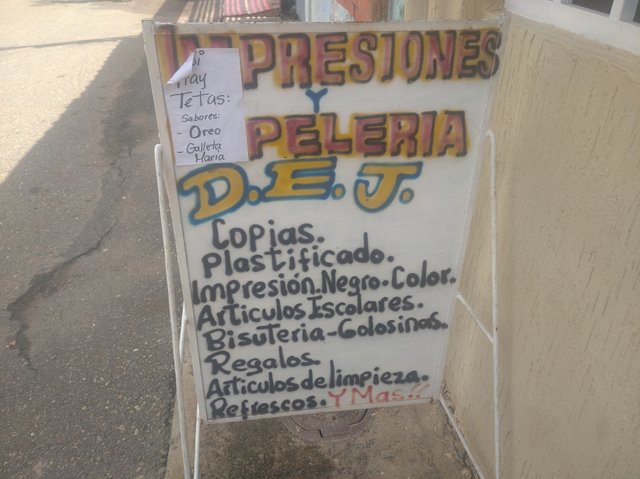 IMPRESIONES
Y
PELERIA
D.E.J.
Si
Hay
Tetas:
Sabores:
- Oreo
- Galleta
María
Copias.
Plastificado.
Impresión.Negro.Color.
Articulos Escolares.
Bisuteria-Golosinas.
Regalos.
Articulos de limpieza.
Refrescos. Y Mas!!